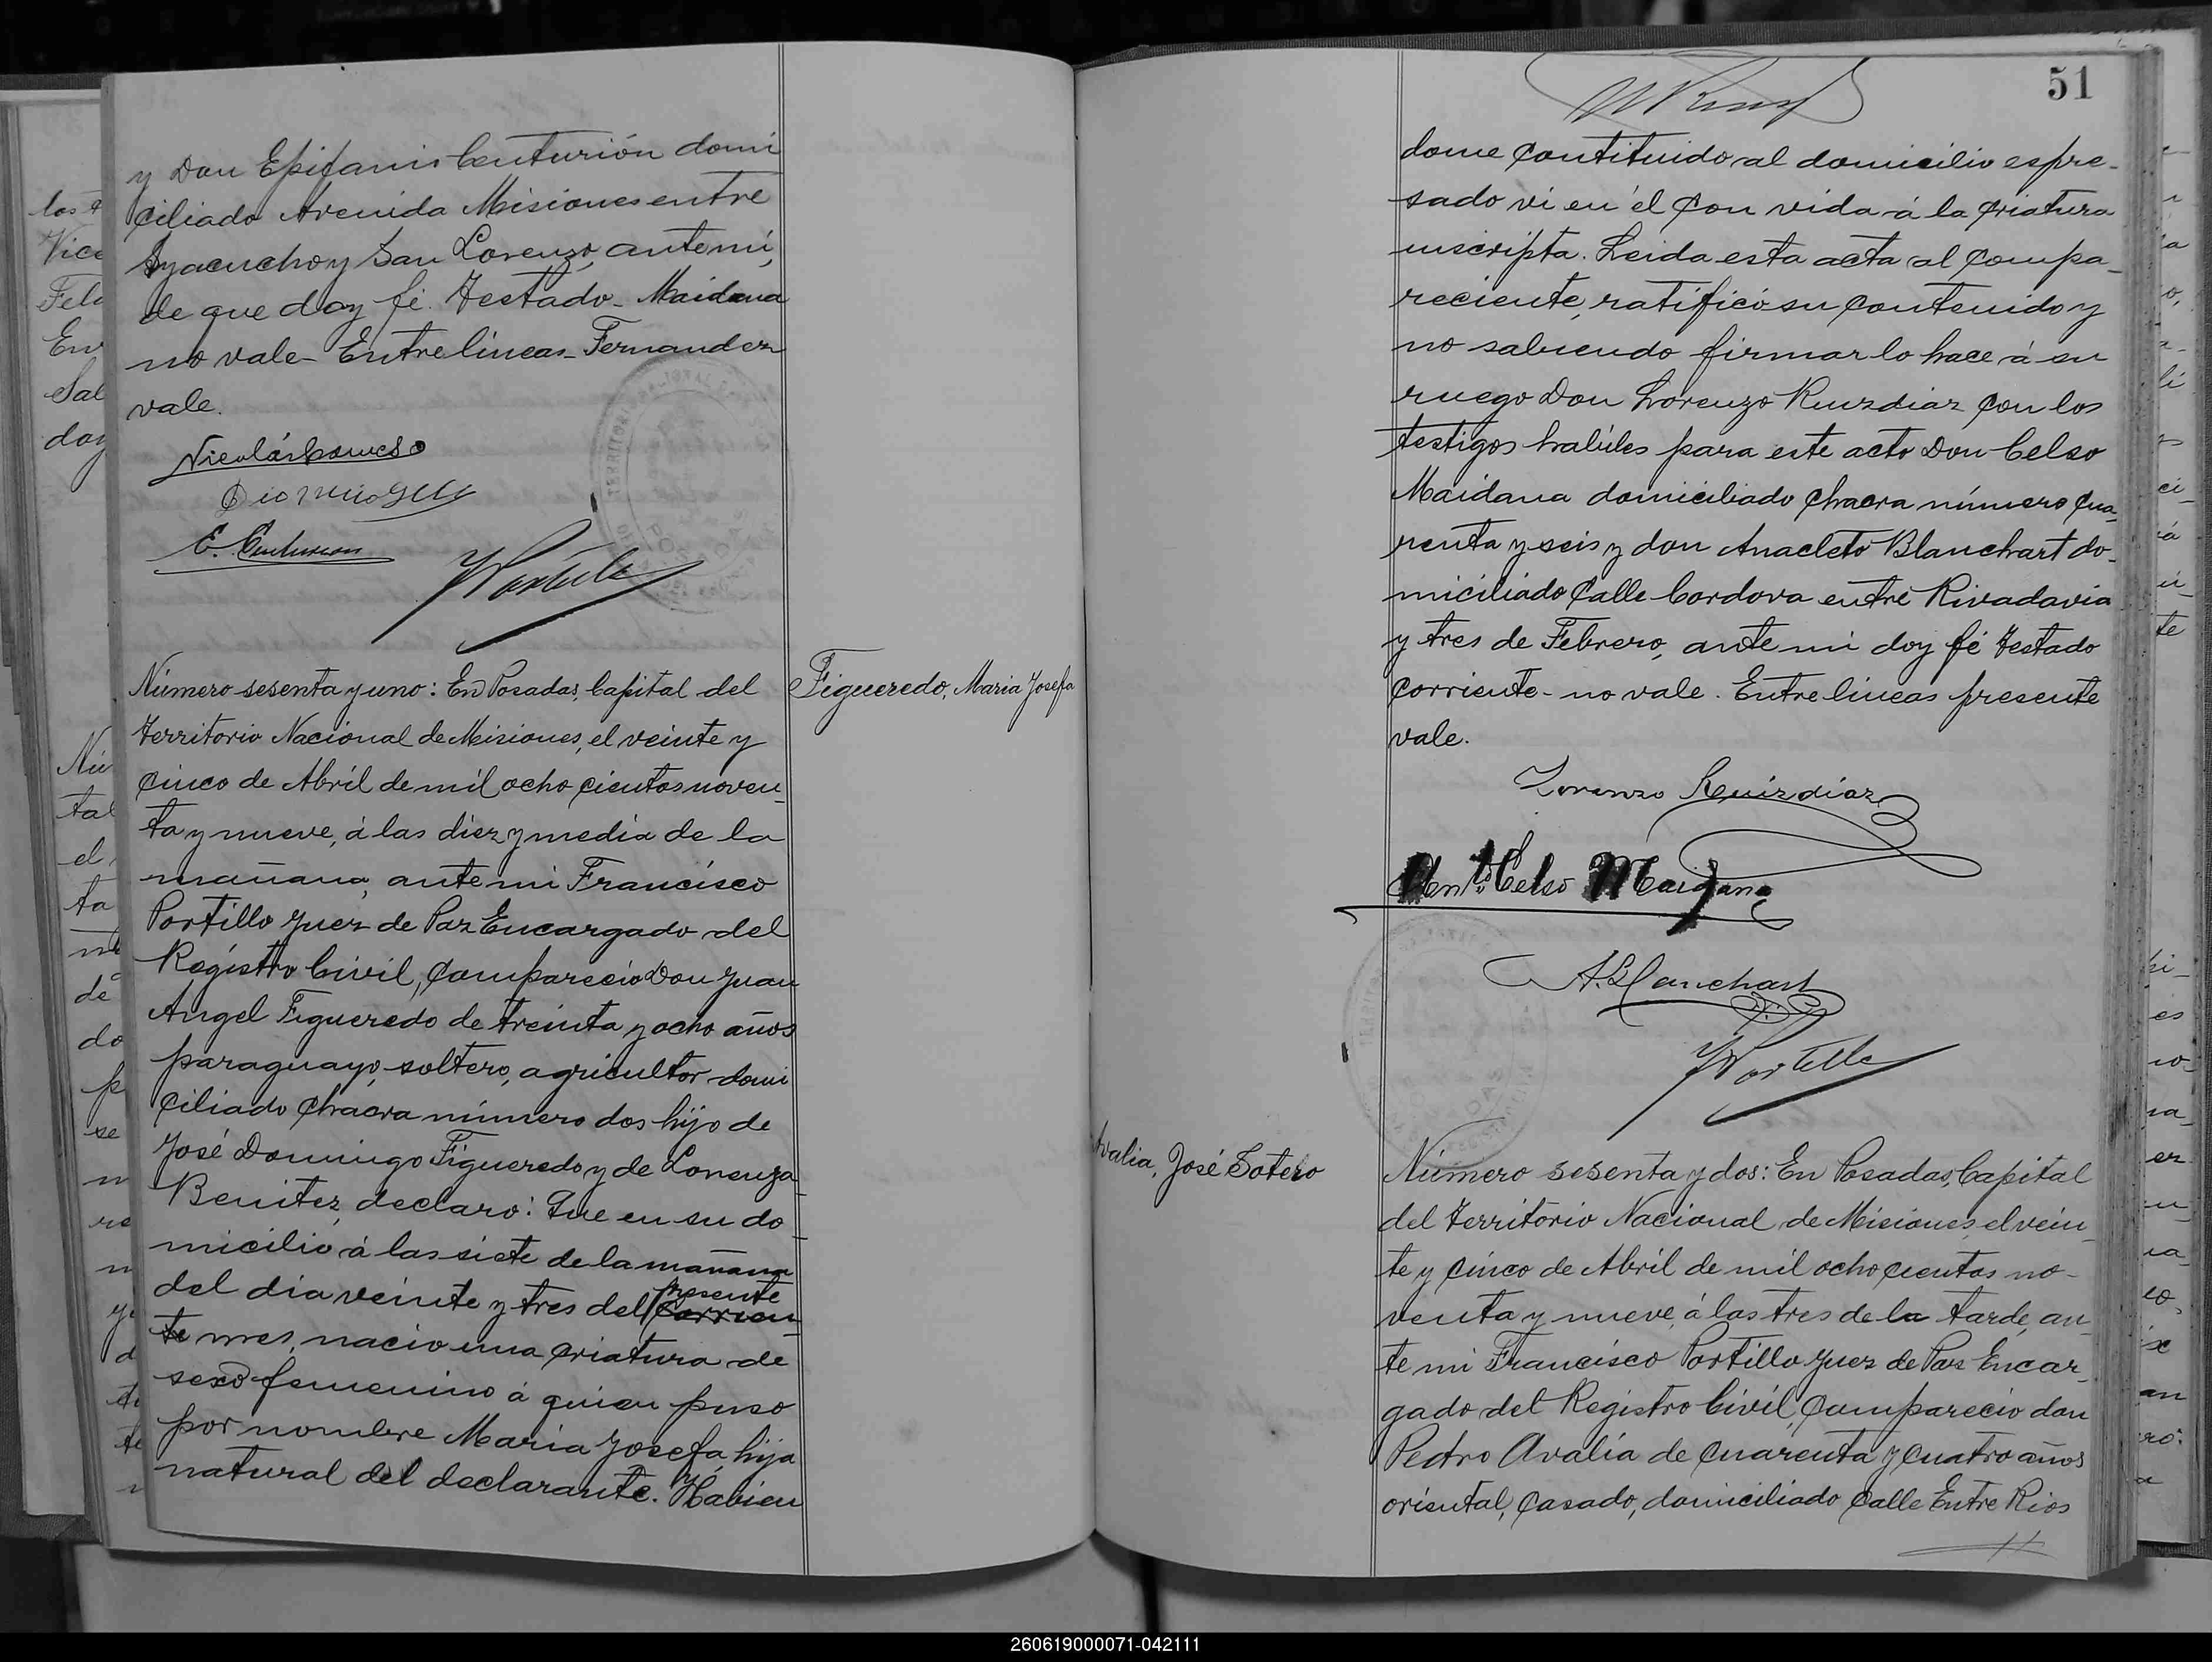 y Don Epifanio Centurión domi
ciliado Avenida Misiones entre
Ayacucho y San Lorenzo, ante mi,
de que doy fé. Testado - Maidana
no vale - Entrelíneas - Fernandez
vale.
E. Centurion
Número sesenta y uno: En Posadas, Capital del
Territorio Nacional de Misiones, el veinte y
cinco de Abril de mil ocho cientos noven_
ta y nueve, á las diez y media de la
mañana, ante mi Francisco
Portillo Juez de Paz Encargado del
Registro Civil, compareció Don Juan
Angel Figueredo de treinta y ocho años
paraguayo, soltero, agricultor domi
ciliado chacra número dos hijo de
José Domingo Figueredo y de Lorenza
Benitez, declaro: Que en su do_
micilio á las siete de la mañana
del dia veinte y tres del presente corrien_
te mes, nacio una criatura de
sexo femenino á quien puso
por nombre Maria Josefa, hija
natural del declarante. Habien
Figueredo, Maria Josefa
51
dome contituido al domicilio espre_
sado vi en él con vida á la criatura
inscripta. Leida esta acta al compa_
reciente, ratificó su contenido y
no sabiendo firmar lo hace á su
ruego Don Lorenzo Ruizdiaz con los
testigos habiles para este acto Don Celso
Maidana domiciliado chacra número cua_
renta y seis y don Anacleto Blanchart do_
miciliado calle Cordova entre Rivadavia
y tres de Febrero, ante mi doy fé Testado
corriente - no vale. Entre lineas presente
vale.
Lorenzo Ruizdiaz
Celso Maidana
A. Blanchart
Portillo
Avalia, José Sotero
Número sesenta y dos: En Posadas, Capital
del Territorio Nacional de Misiones, el vein_
te y cinco de Abril de mil ocho cientos no_
venta y nueve, á las tres de la tarde, an_
te mi Francisco Portillo Juez de Paz Encar_
gado del Registro Civil, compareció don
Pedro Avalia de cuarenta y cuatro años
oriental, casado, domiciliado calle Entre Rios
260619000071-042111